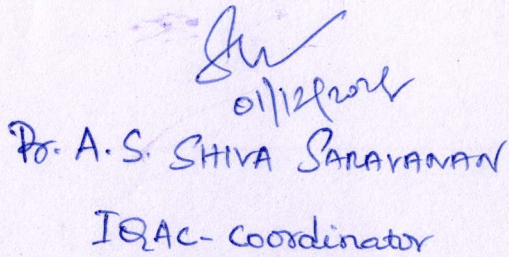 01/12/2025
Dr. A. S. SHIVA SARAVANAN
IQAC - Coordinator